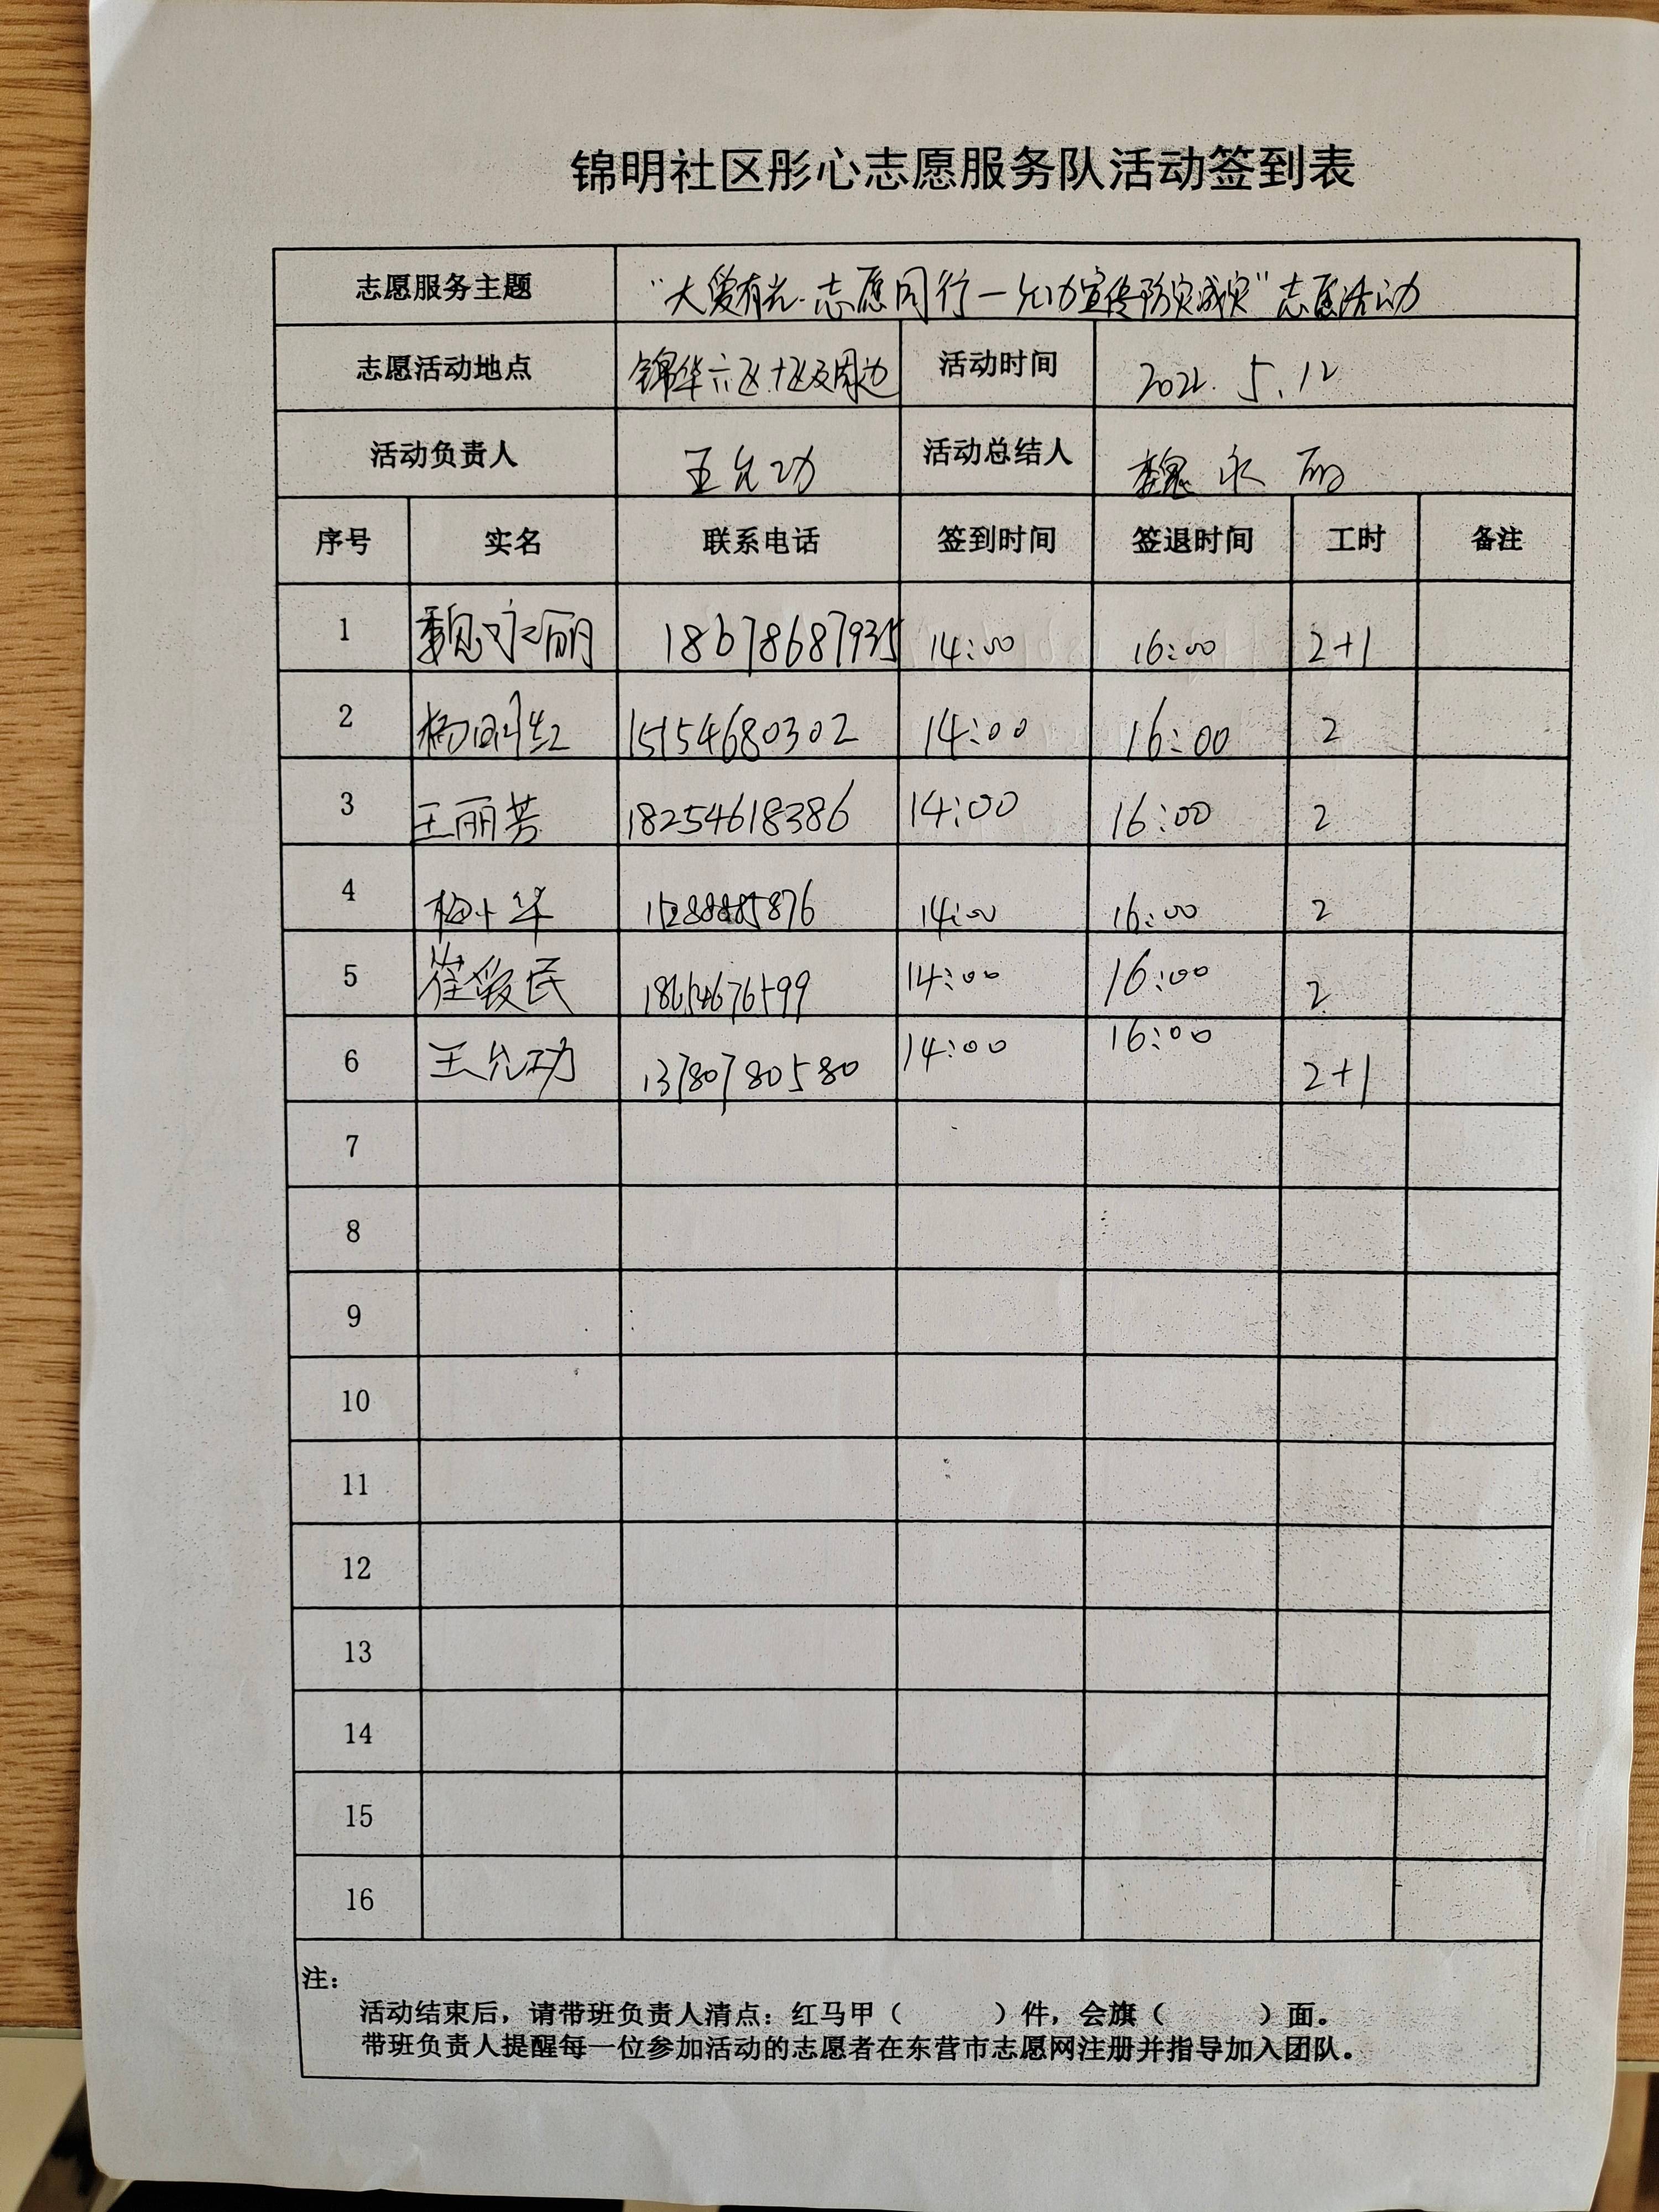 锦明社区彤心志愿服务队活动签到表
志愿服务主题 “大爱有光·志愿同行—允功宣传防灾减灾”志愿活动
志愿活动地点 锦华六区十区及周边 活动时间 2022.5.12
活动负责人 王允功 活动总结人 魏永丽
序号 实名 联系电话 签到时间 签退时间 工时 备注
1 魏永丽 18678687935 14:00 16:00 2+1
2 杨 红 15154680302 14:00 16:00 2
3 王丽芳 18254618386 14:00 16:00 2
4 梅小华 14:00 16:00 2
5 崔爱民 18654676599 14:00 16:00 2
6 王允功 13780780580 14:00 16:00 2+1
7
8
9
10
11
12
13
14
15
16
注：
活动结束后，请带班负责人清点：红马甲（ ）件，会旗（ ）面。
带班负责人提醒每一位参加活动的志愿者在东营市志愿网注册并指导加入团队。